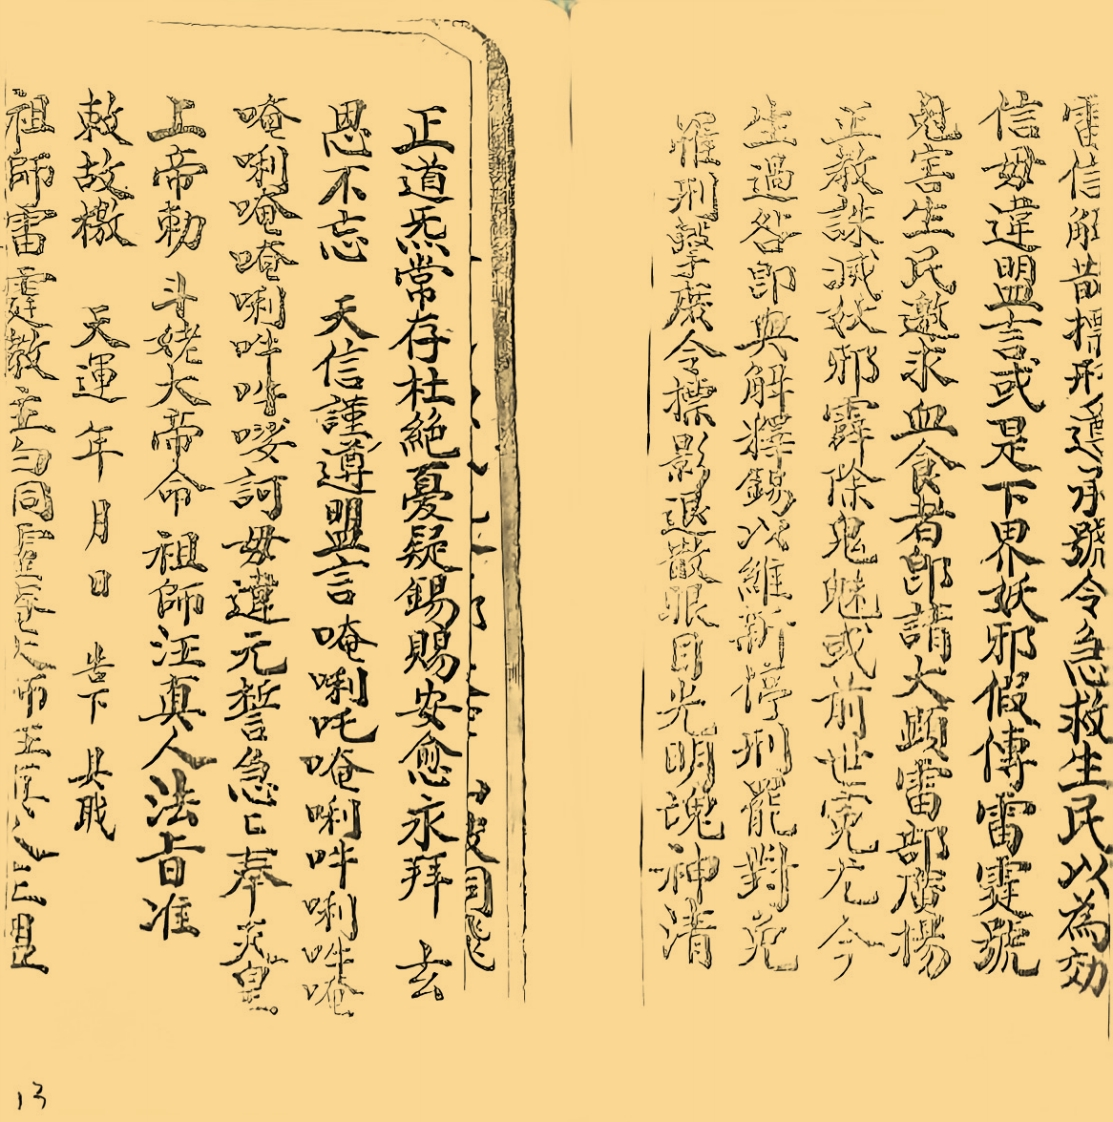 雷信解昔標形遠承號令急救生民以為効
信毋違盟言或是下界妖邪假傳雷霆號
魁害生民邀求血食者即請大顕雷部
正教誅滅妖邪霹除鬼魅或前世冤尤今
生過咎即與解釋錫以維新停刑罷對免
罹刑擊廢令標影退散眼目光明魂神清
正道炁常存杜絕憂疑錫賜安愈永拜 玄
恩不忘 天信謹遵盟言唵唎吒唵唎吽唎吽唵
唵唎唵唵唎吽吽㗭訶毋違元誓急匕奉 天皇
上帝勅 斗姥大帝命 祖師汪真人法旨准
敕故檄 天運 年 月 日 告下 具職
祖師雷霆教主
13